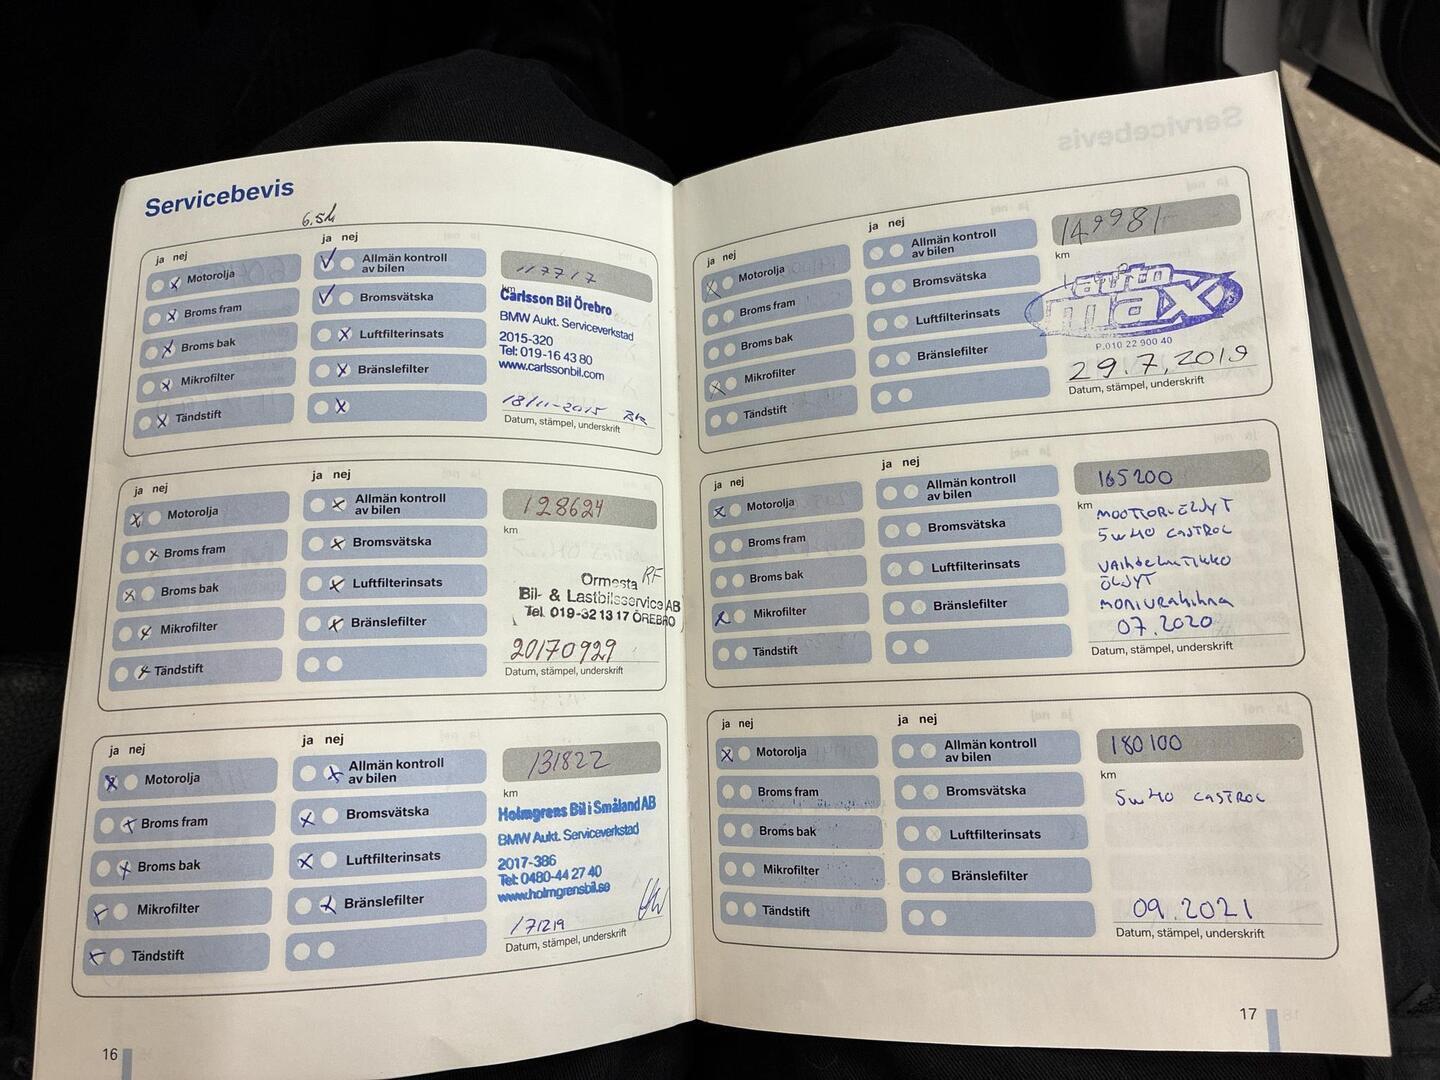 Servicebevis
ja nej
Motorolja
Broms fram
Broms bak
Mikrofilter
Tändstift
ja nej
Allmän kontroll
av bilen
Bromsvätska
Luftfilterinsats
Bränslefilter
117717
km
Carlsson Bil Örebro
BMW Aukt. Serviceverkstad
2015-320
Tel: 019-16 43 80
www.carlssonbil.com
18/11-2015
Datum, stämpel, underskrift
ja nej
Motorolja
Broms fram
Broms bak
Mikrofilter
Tändstift
ja nej
Allmän kontroll
av bilen
Bromsvätska
Luftfilterinsats
Bränslefilter
128624
km
Ormesta RF
Bil- & Lastbilsservice AB
Tel. 019-32 13 17 ÖREBRO
20170929
Datum, stämpel, underskrift
ja nej
Motorolja
Broms fram
Broms bak
Mikrofilter
Tändstift
ja nej
Allmän kontroll
av bilen
Bromsvätska
Luftfilterinsats
Bränslefilter
131822
km
Holmgrens Bil i Småland AB
BMW Aukt. Serviceverkstad
2017-386
Tel: 0480-44 27 40
www.holmgrensbil.se
171219
Datum, stämpel, underskrift
16
ja nej
Motorolja
Broms fram
Broms bak
Mikrofilter
Tändstift
ja nej
Allmän kontroll
av bilen
Bromsvätska
Luftfilterinsats
Bränslefilter
149981
km
auto
max
P.010 22 900 40
29.7.2019
Datum, stämpel, underskrift
ja nej
Motorolja
Broms fram
Broms bak
Mikrofilter
Tändstift
ja nej
Allmän kontroll
av bilen
Bromsvätska
Luftfilterinsats
Bränslefilter
165200
km
MOOTTORIÖLJYT
5W40 CASTROL
VAIHDELAATIKKO
ÖLJYT
MONIURAHIHNA
07.2020
Datum, stämpel, underskrift
ja nej
Motorolja
Broms fram
Broms bak
Mikrofilter
Tändstift
ja nej
Allmän kontroll
av bilen
Bromsvätska
Luftfilterinsats
Bränslefilter
180100
km
5W40 CASTROL
09.2021
Datum, stämpel, underskrift
17